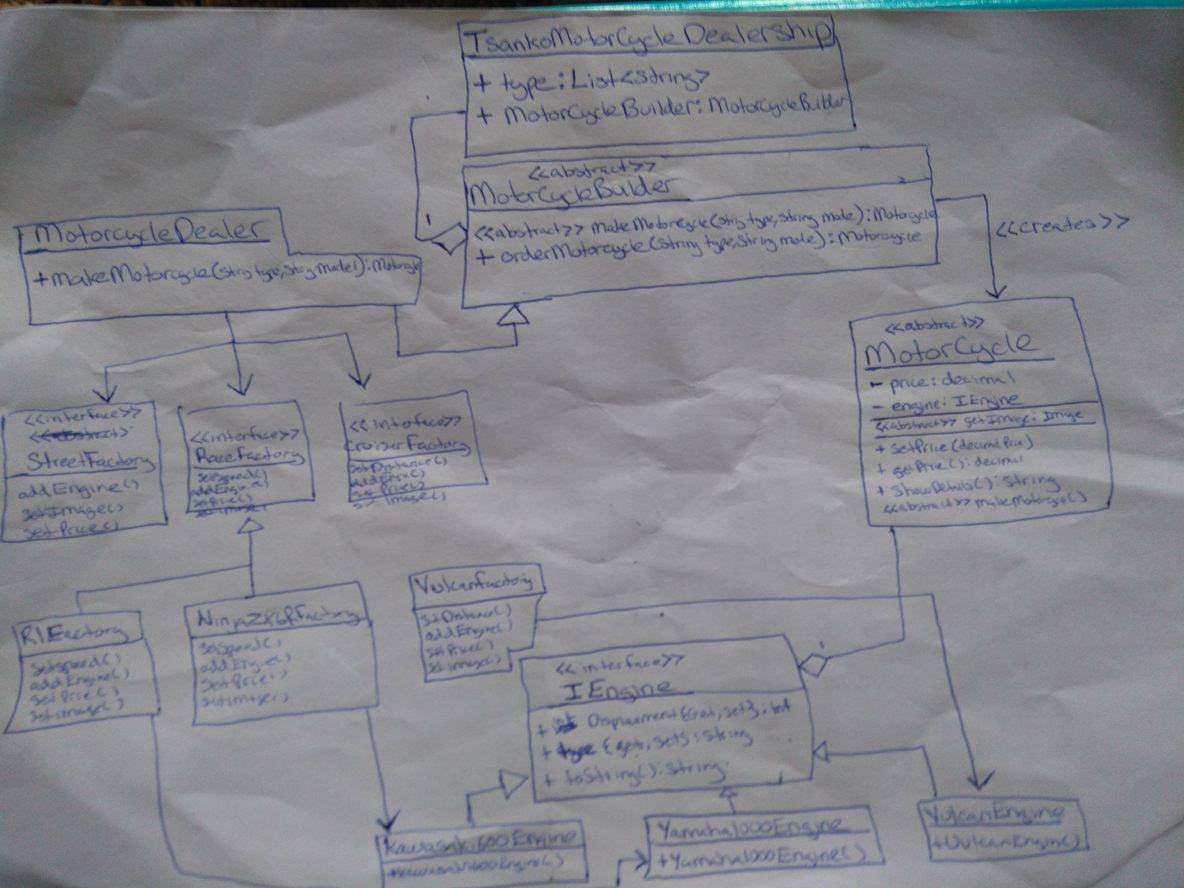 TsankoMotorCycleDealership
+ type: List<string>
+ MotorCycleBuilder: MotorCycleBuilder
<<abstract>>
MotorCycleBuilder
<<abstract>> makeMotorcycle(string type, string mode): Motorcycle
+ orderMotorcycle(string type, string mode): Motorcycle
1
<<creates>>
MotorcycleDealer
+makeMotorcycle(string type, string model): Motorcycle
<<abstract>>
MotorCycle
- price: decimal
- engine: IEngine
<<abstract>> getImage: Image
+ setPrice(decimal Price)
+ getPrice(): decimal
+ showDetails(): string
<<abstract>> makeMotorcycle()
<<interface>>
<<abstract>>
StreetFactory
addEngine()
setImage()
setPrice()
<<interface>>
RaceFactory
setSpeed()
addEngine()
setPrice()
setImage()
<<interface>>
CruiserFactory
setDistance()
addEngine()
setPrice()
set image()
R1Factory
setspeed()
addEngine()
setPrice()
setimage()
NinjaZX6RFactory
setSpeed()
addEngine()
setPrice()
setimage()
VulcanFactory
setDistance()
addEngine()
setPrice()
setimage()
<<interface>>
IEngine
+ Displacement {get, set}: int
+ type {get, set}: string
+ toString(): string
1
Kawasaki600Engine
+Kawasaki600Engine()
Yamaha1000Engine
+Yamaha1000Engine()
VulcanEngine
+VulcanEngine()